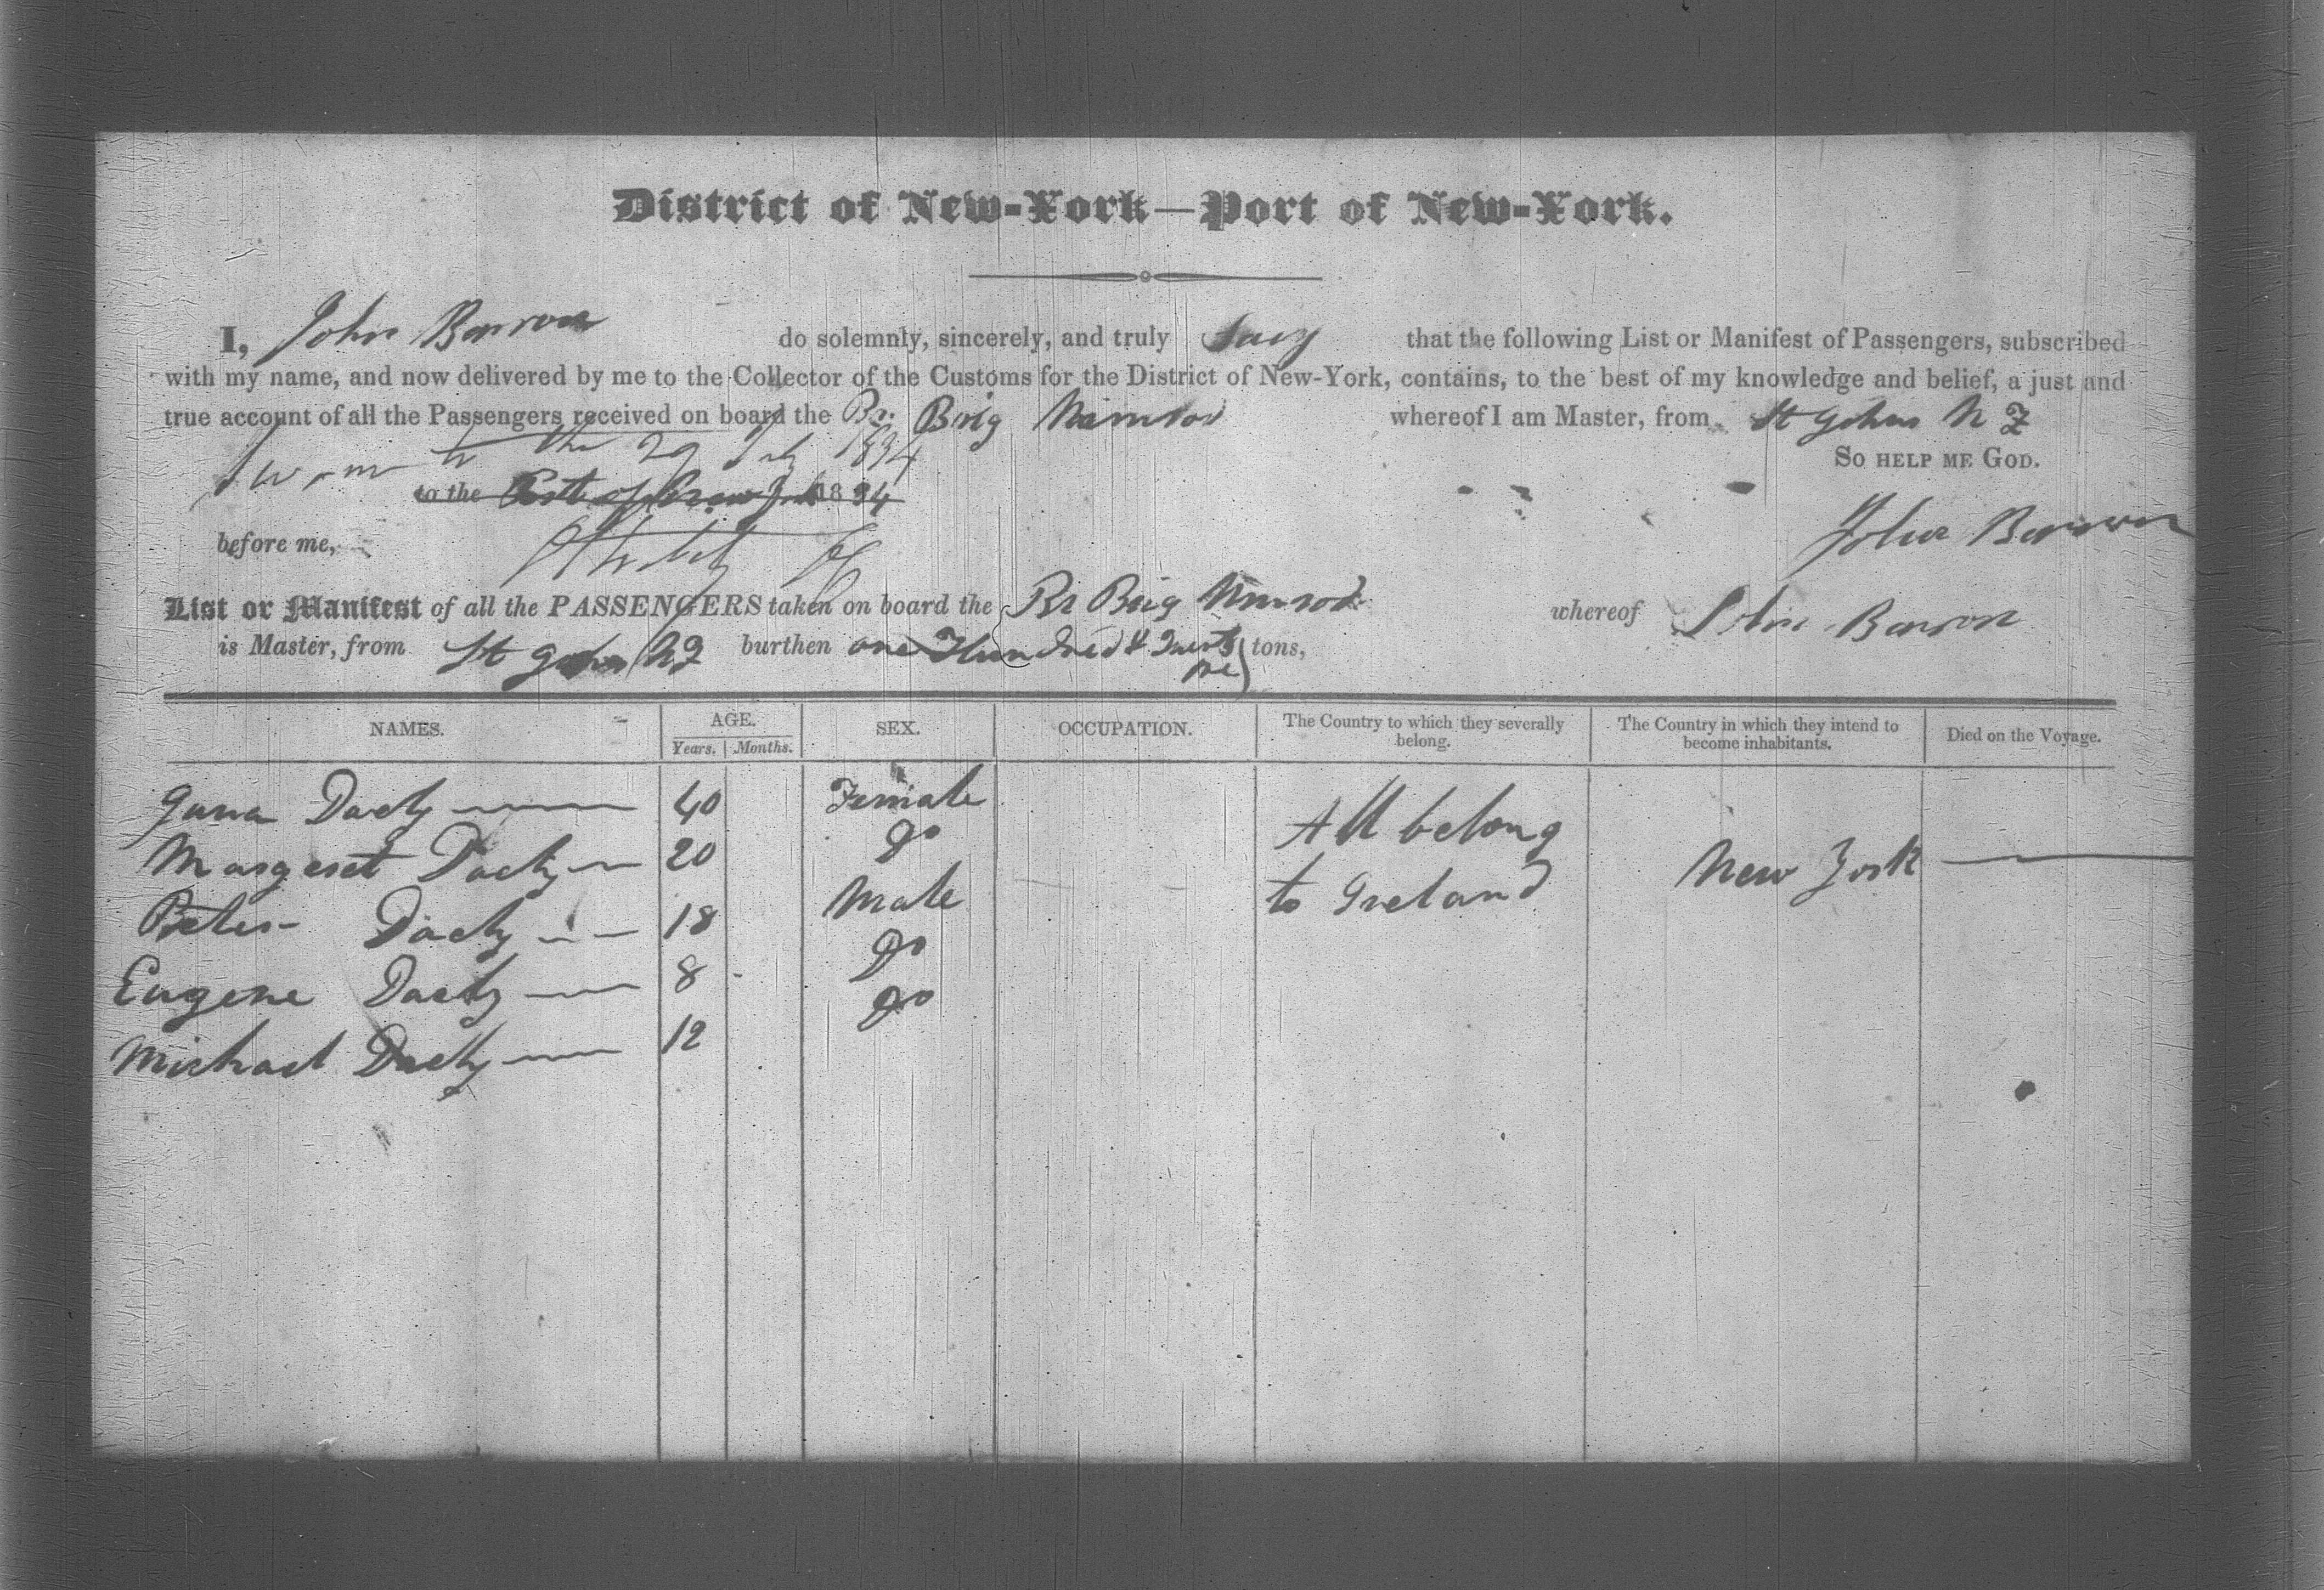 District of New-York—Port of New-York.
I, John Barron do solemnly, sincerely, and truly that the following List or Manifest of Passengers, subscribed
with my name, and now delivered by me to the Collector of the Customs for the District of New-York, contains, to the best of my knowledge and belief, a just and
true account of all the Passengers received on board the Br. Brig Nimrod whereof I am Master, from St Johns N F
Sworn to the 29 July 1834
So help me God.
to the 1834
John Barron
before me,
List or Manifest of all the PASSENGERS taken on board the Br Brig Nimrod whereof John Barron
is Master, from St Johns NF burthen one Hundred & Twenty tons,
NAMES. AGE. SEX. OCCUPATION. The Country to which they severally belong. The Country in which they intend to become inhabitants. Died on the Voyage.
Years. Months.
Dady 40 Female All belong
Margeret Dady 20 Do New York
Peter Dady 18 Male to Ireland
Eugene Dady 8 Do
Michael Dady 12 Do